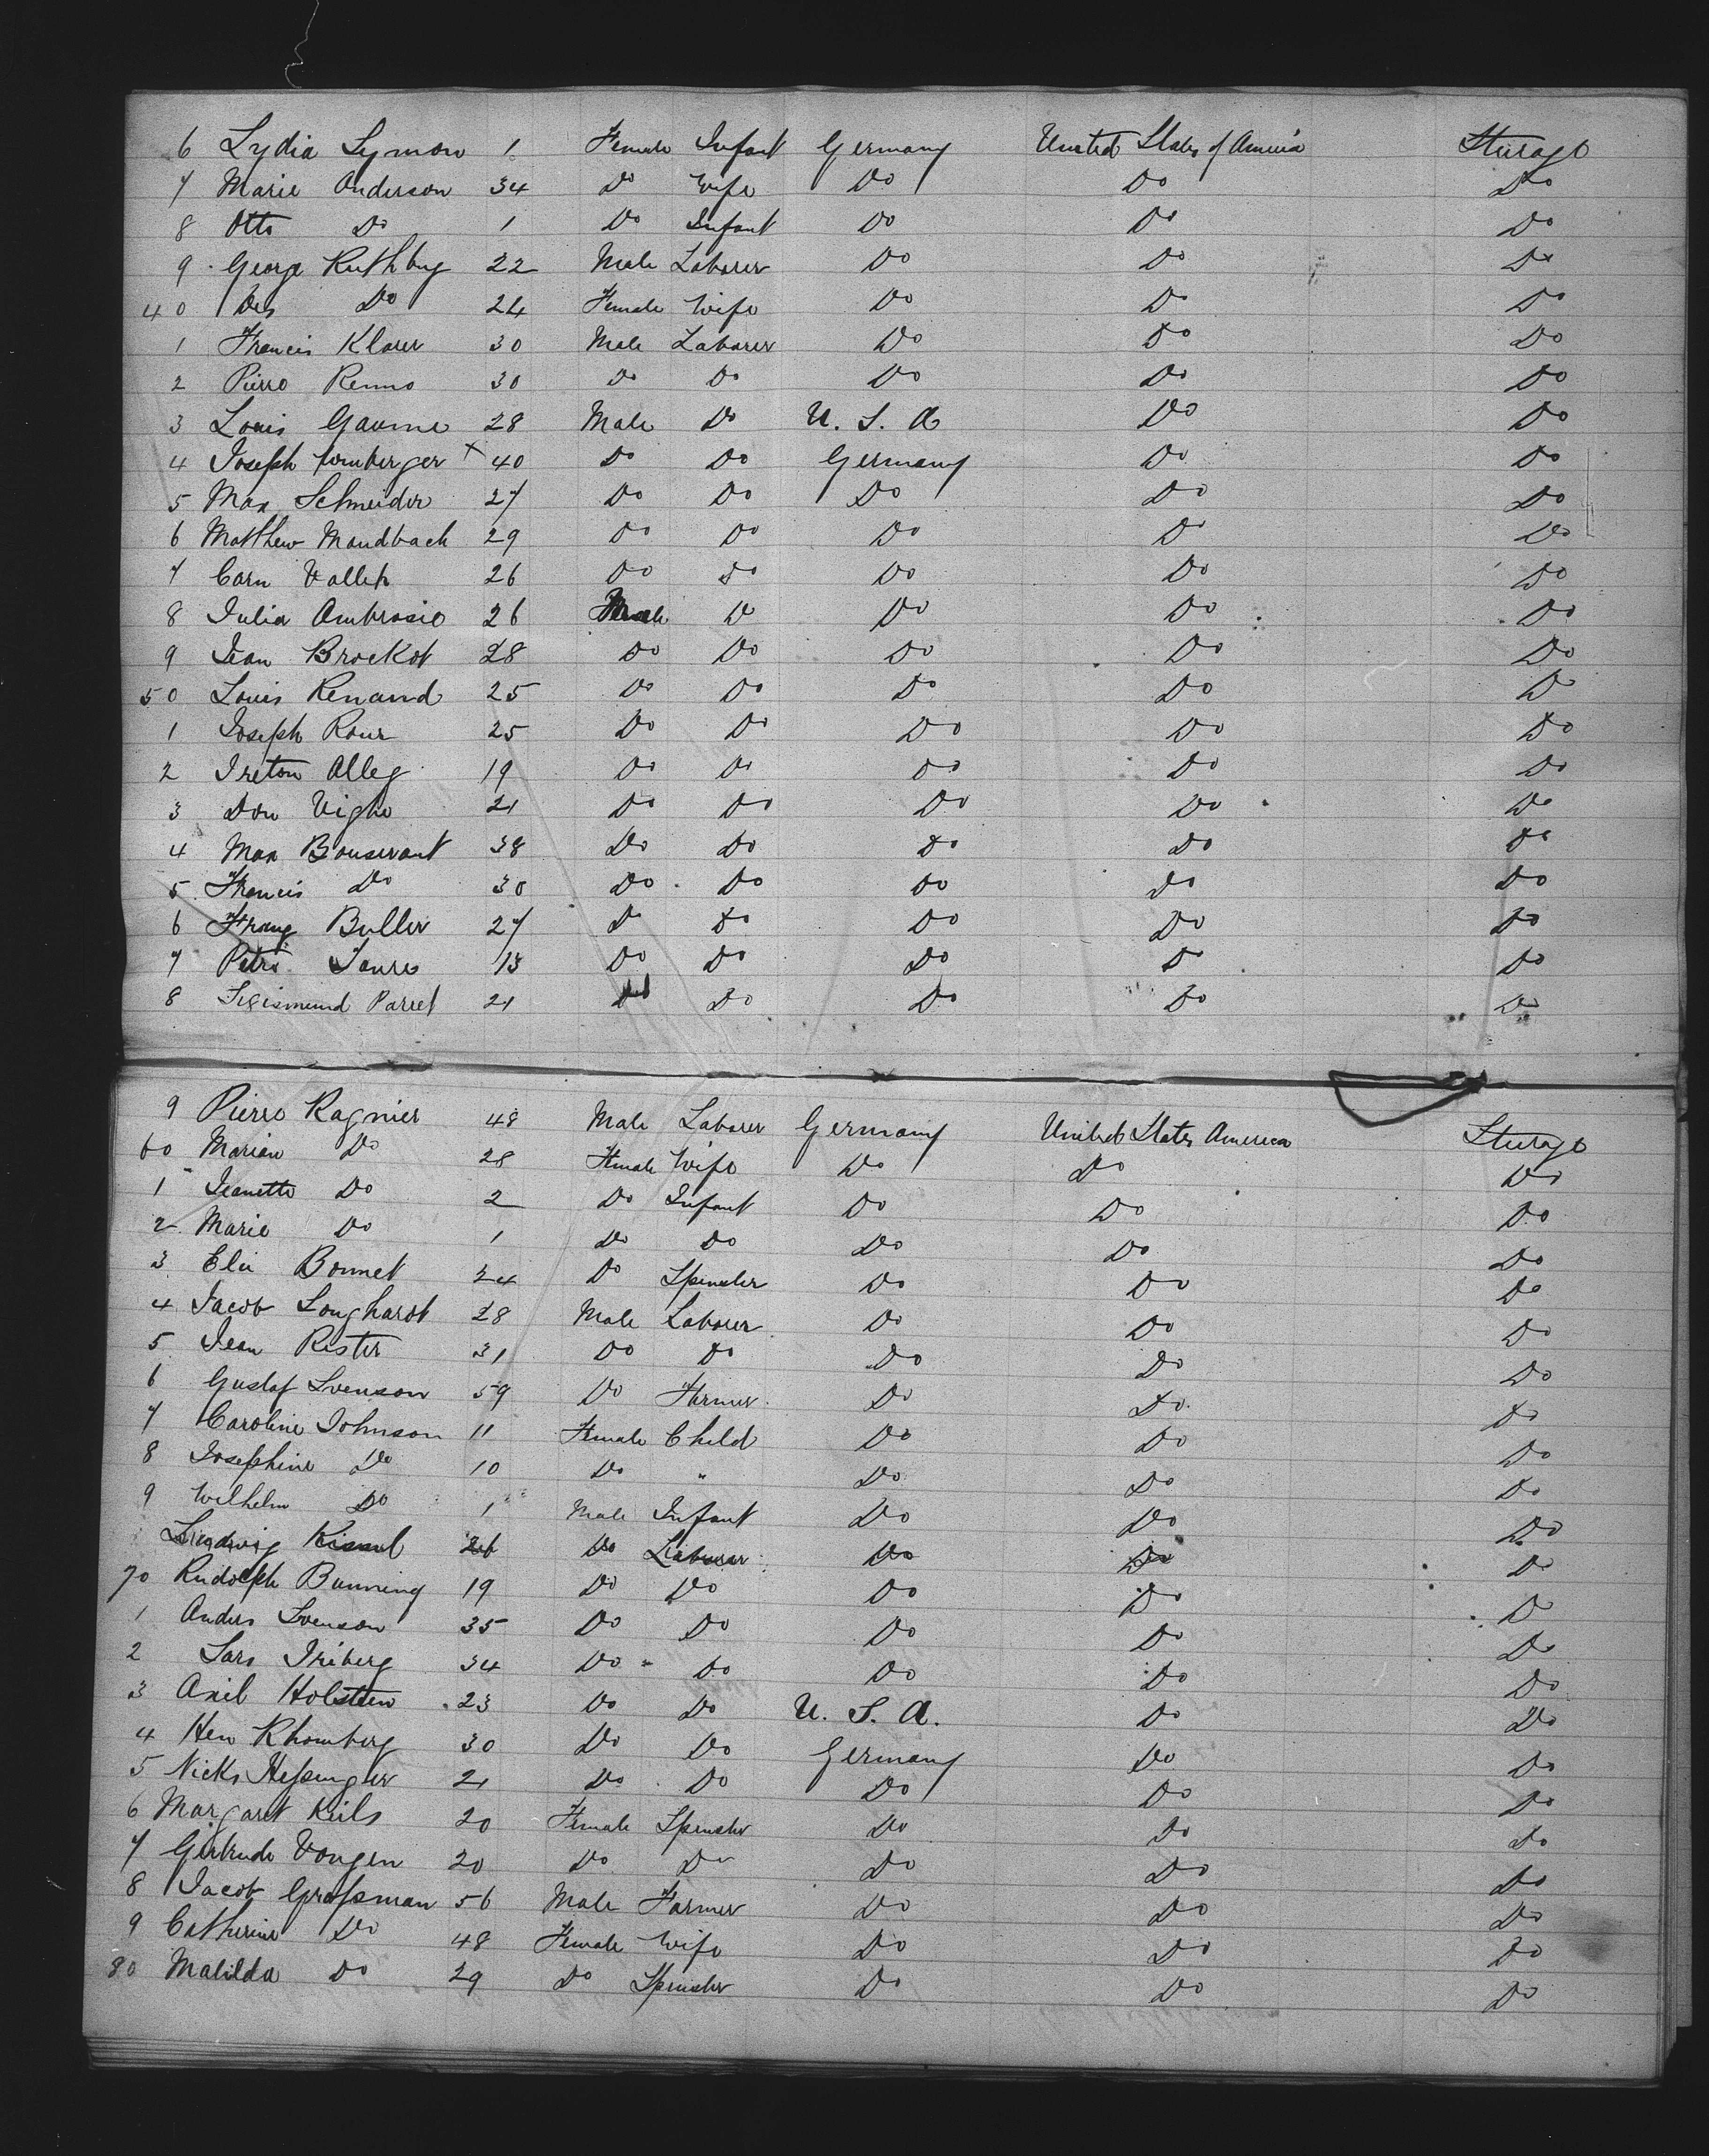 6 Lydia Symon 1 Female Infant Germany United States of America Sturage
7 Marie Anderson 34 Do Wife Do Do Do
8 Otto Do 1 Do Infant Do Do Do
9 George Ruthbug 22 Male Laborer Do Do Do
40 Do 24 Female Wife Do Do Do
1 Francis Klarer 30 Male Laborer Do Do Do
2 Pierro Remo 30 Do Do Do Do Do
3 Louis Gaume 28 Male Do U. S. A Do Do
4 Joseph x 40 Do Do Germany Do Do
5 Max Schneider 27 Do Do Do Do Do
6 Matthew Mandbach 29 Do Do Do Do Do
7 Carn Valleh 26 Do Do Do Do Do
8 Julia Ambrosio 26 Male Do Do Do Do
9 Jean Brockot 28 Do Do Do Do Do
50 Louis Renand 25 Do Do Do Do Do
1 Joseph Rour 25 Do Do Do Do Do
2 Ireton Alleg 19 Do Do Do Do Do
3 Don Vigho 21 Do Do Do Do Do
4 Max Bouservant 38 Do Do Do Do Do
5 Francis Do 30 Do Do Do Do Do
6 Frang Buller 27 Do Do Do Do Do
7 Petro Faure 13 Do Do Do Do Do
8 Sigismund Parret 21 Do Do Do Do Do
9 Pierro Ragnier 48 Male Laborer Germany United States America Sturage
60 Marian Do 28 Female Wife Do Do Do
1 Jeanette Do 2 Do Infant Do Do Do
2 Marie Do 1 Do Do Do Do Do
3 Elie Bonnet 24 Do Spinster Do Do Do
4 Jacob Longhardt 28 Male Laborer Do Do Do
5 Jean Rister 31 Do Do Do Do Do
6 Gustaf Svenson 59 Do Farmer Do Do Do
7 Caroline Johnson 11 Female Child Do Do Do
8 Josephine Do 10 Do " Do Do Do
9 Wilhelm Do 1 Male Infant Do Do Do
Ludwig Kissel 26 Do Laborer Do Do Do
70 Rudolph Bunning 19 Do Do Do Do Do
1 Anders Svenson 35 Do Do Do Do Do
2 Lars Friberg 34 Do Do Do Do Do
3 Axil Holsteen 23 Do Do U. S. A. Do Do
4 Hen Rhomberg 30 Do Do Germany Do Do
5 Nicks Hessingler 21 Do Do Do Do Do
6 Margaret Keils 20 Female Spinster Do Do Do
7 Gertrude Vongen 20 Do Do Do Do Do
8 Jacob Grassman 56 Male Farmer Do Do Do
9 Catherine Do 48 Female Wife Do Do Do
80 Matilda Do 29 Do Spinster Do Do Do